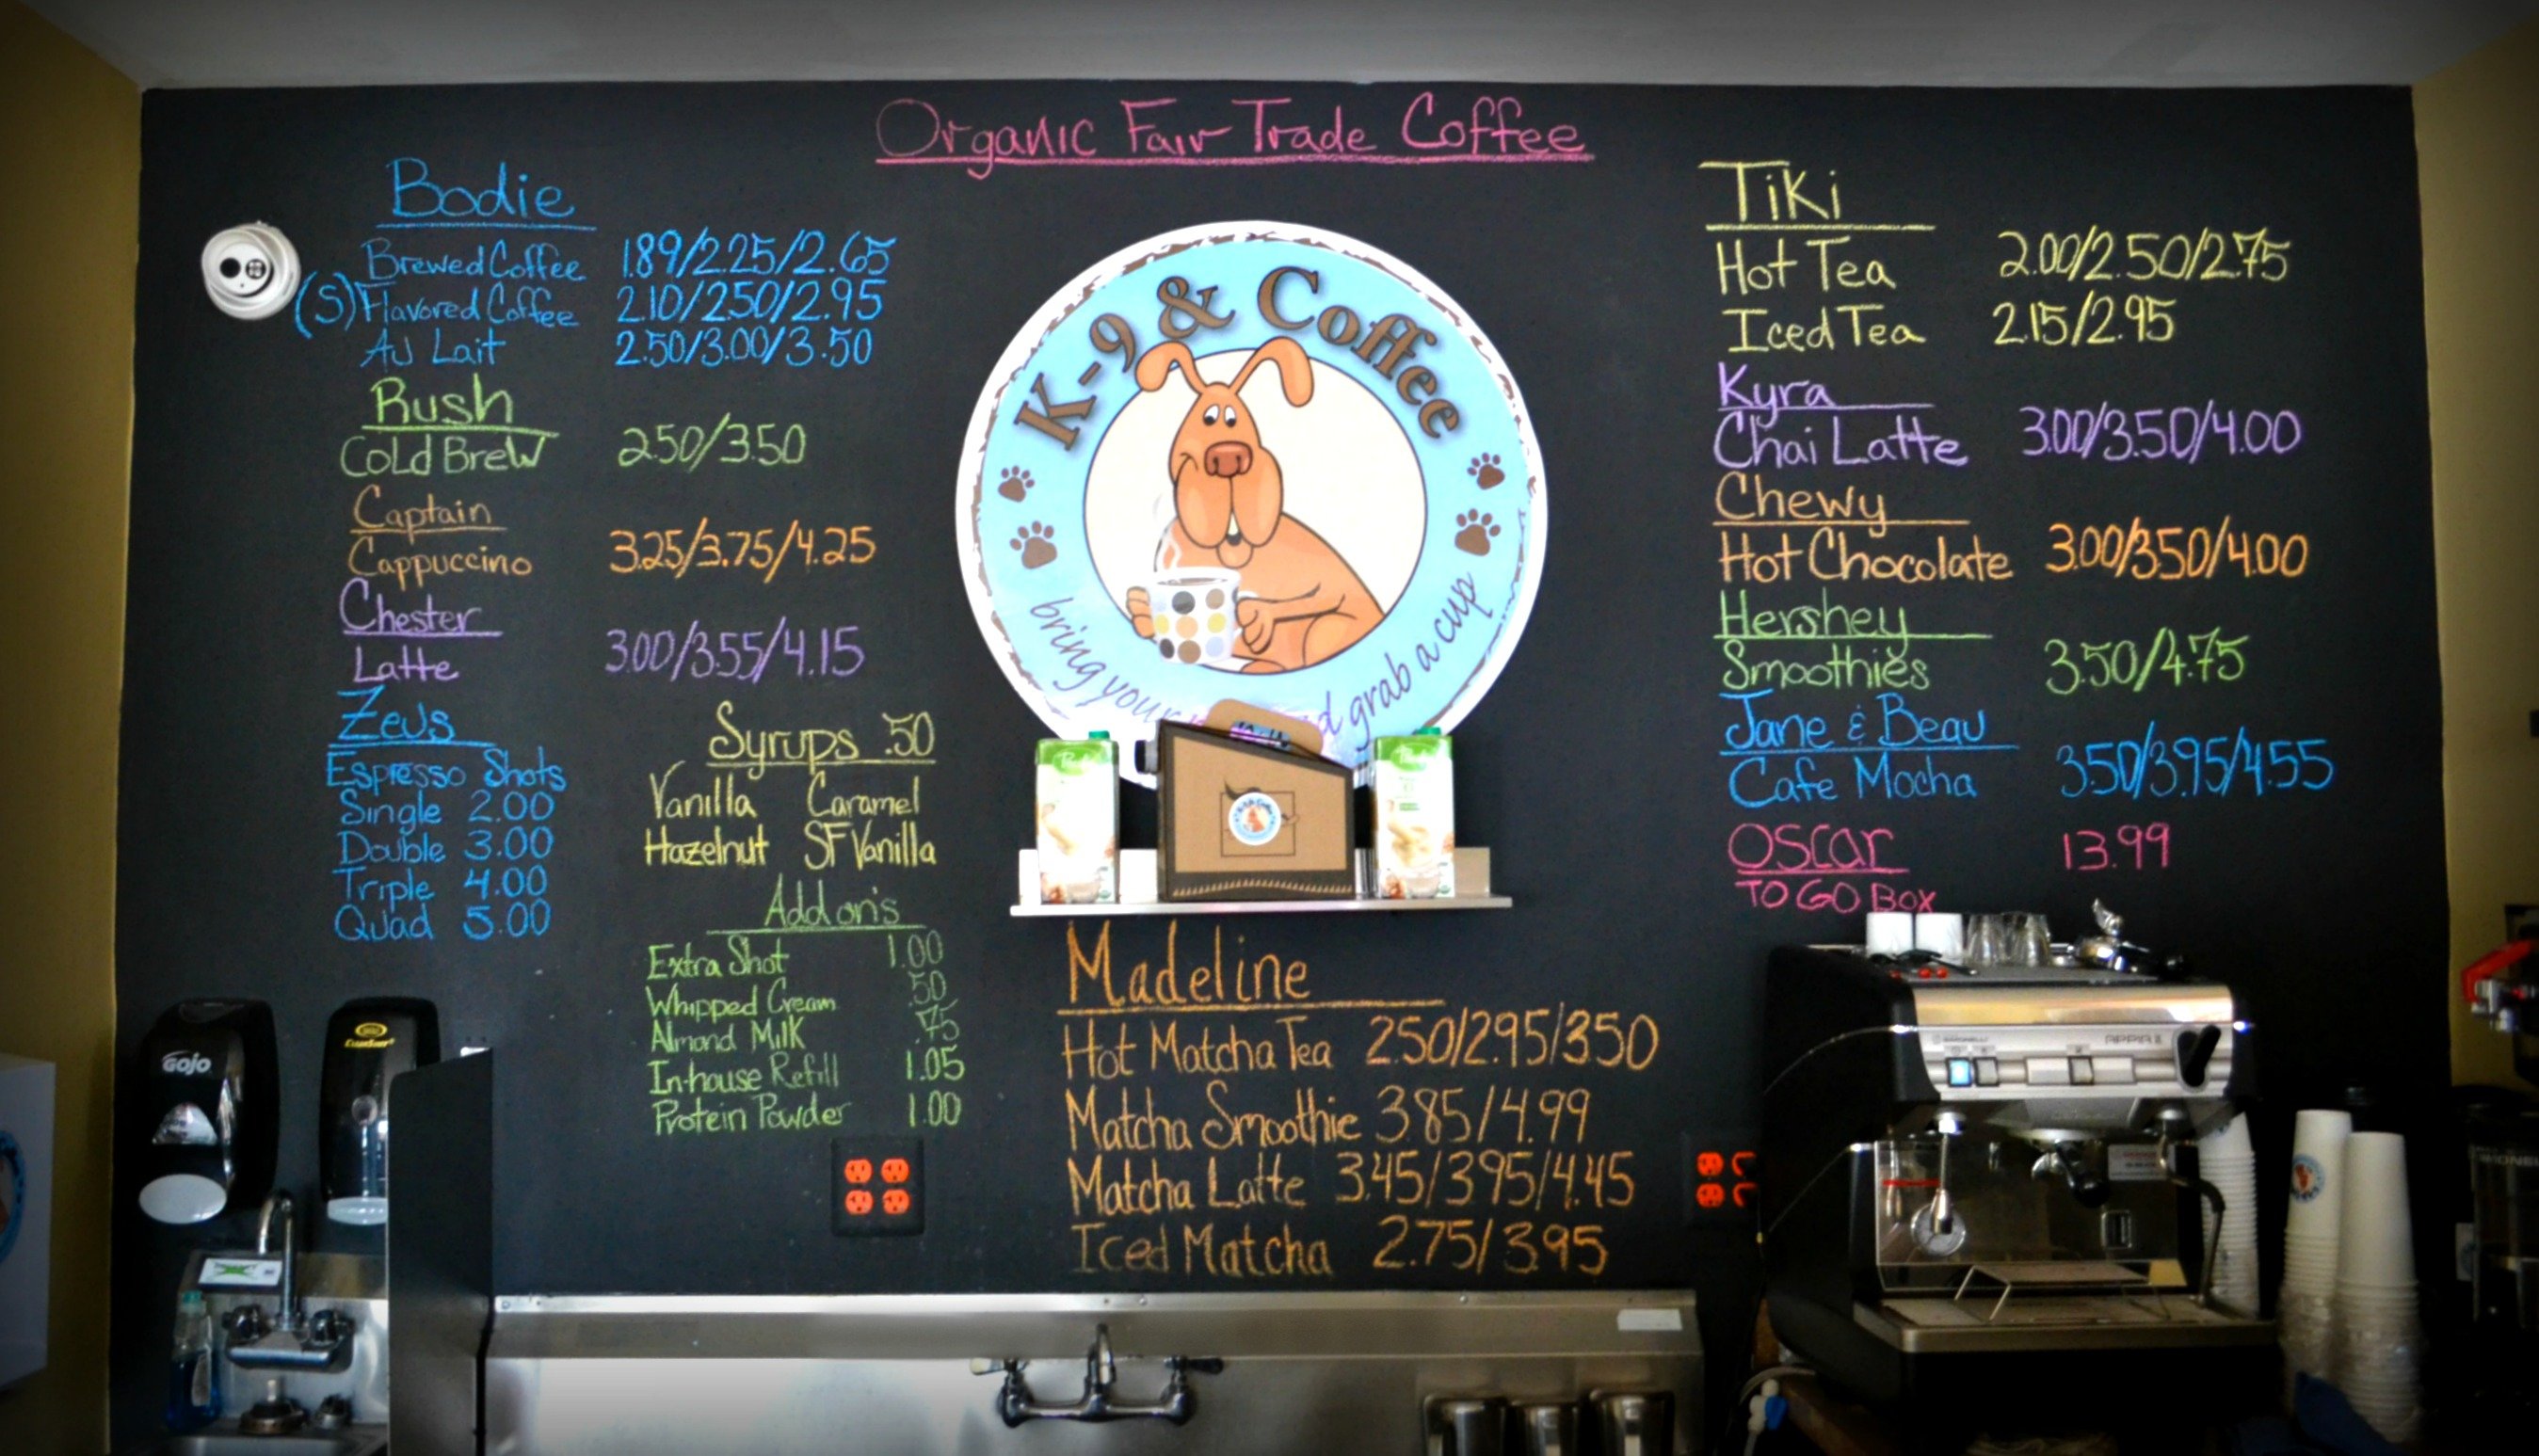 Organic Fair Trade Coffee
Bodie
Brewed Coffee 1.89/2.25/2.65
(S) Flavored Coffee 2.10/2.50/2.95
Au Lait 2.50/3.00/3.50
Rush
Cold Brew 2.50/3.50
Captain
Cappuccino 3.25/3.75/4.25
Chester
Latte 3.00/3.55/4.15
Zeus
Espresso Shots
Single 2.00
Double 3.00
Triple 4.00
Quad 5.00
Syrups .50
Vanilla Caramel
Hazelnut SF Vanilla
Add on's
Extra Shot 1.00
Whipped Cream .50
Almond Milk .75
In-house Refill 1.05
Protein Powder 1.00
K-9 & Coffee
bring your
grab a cup
Madeline
Hot Matcha Tea 2.50/2.95/3.50
Matcha Smoothie 3.85/4.99
Matcha Latte 3.45/3.95/4.45
Iced Matcha 2.75/3.95
Tiki
Hot Tea 2.00/2.50/2.75
Iced Tea 2.15/2.95
Kyra
Chai Latte 3.00/3.50/4.00
Chewy
Hot Chocolate 3.00/3.50/4.00
Hershey
Smoothies 3.50/4.75
Jane & Beau
Cafe Mocha 3.50/3.95/4.55
Oscar 13.99
TO GO BOX
GOJO
APPIA II